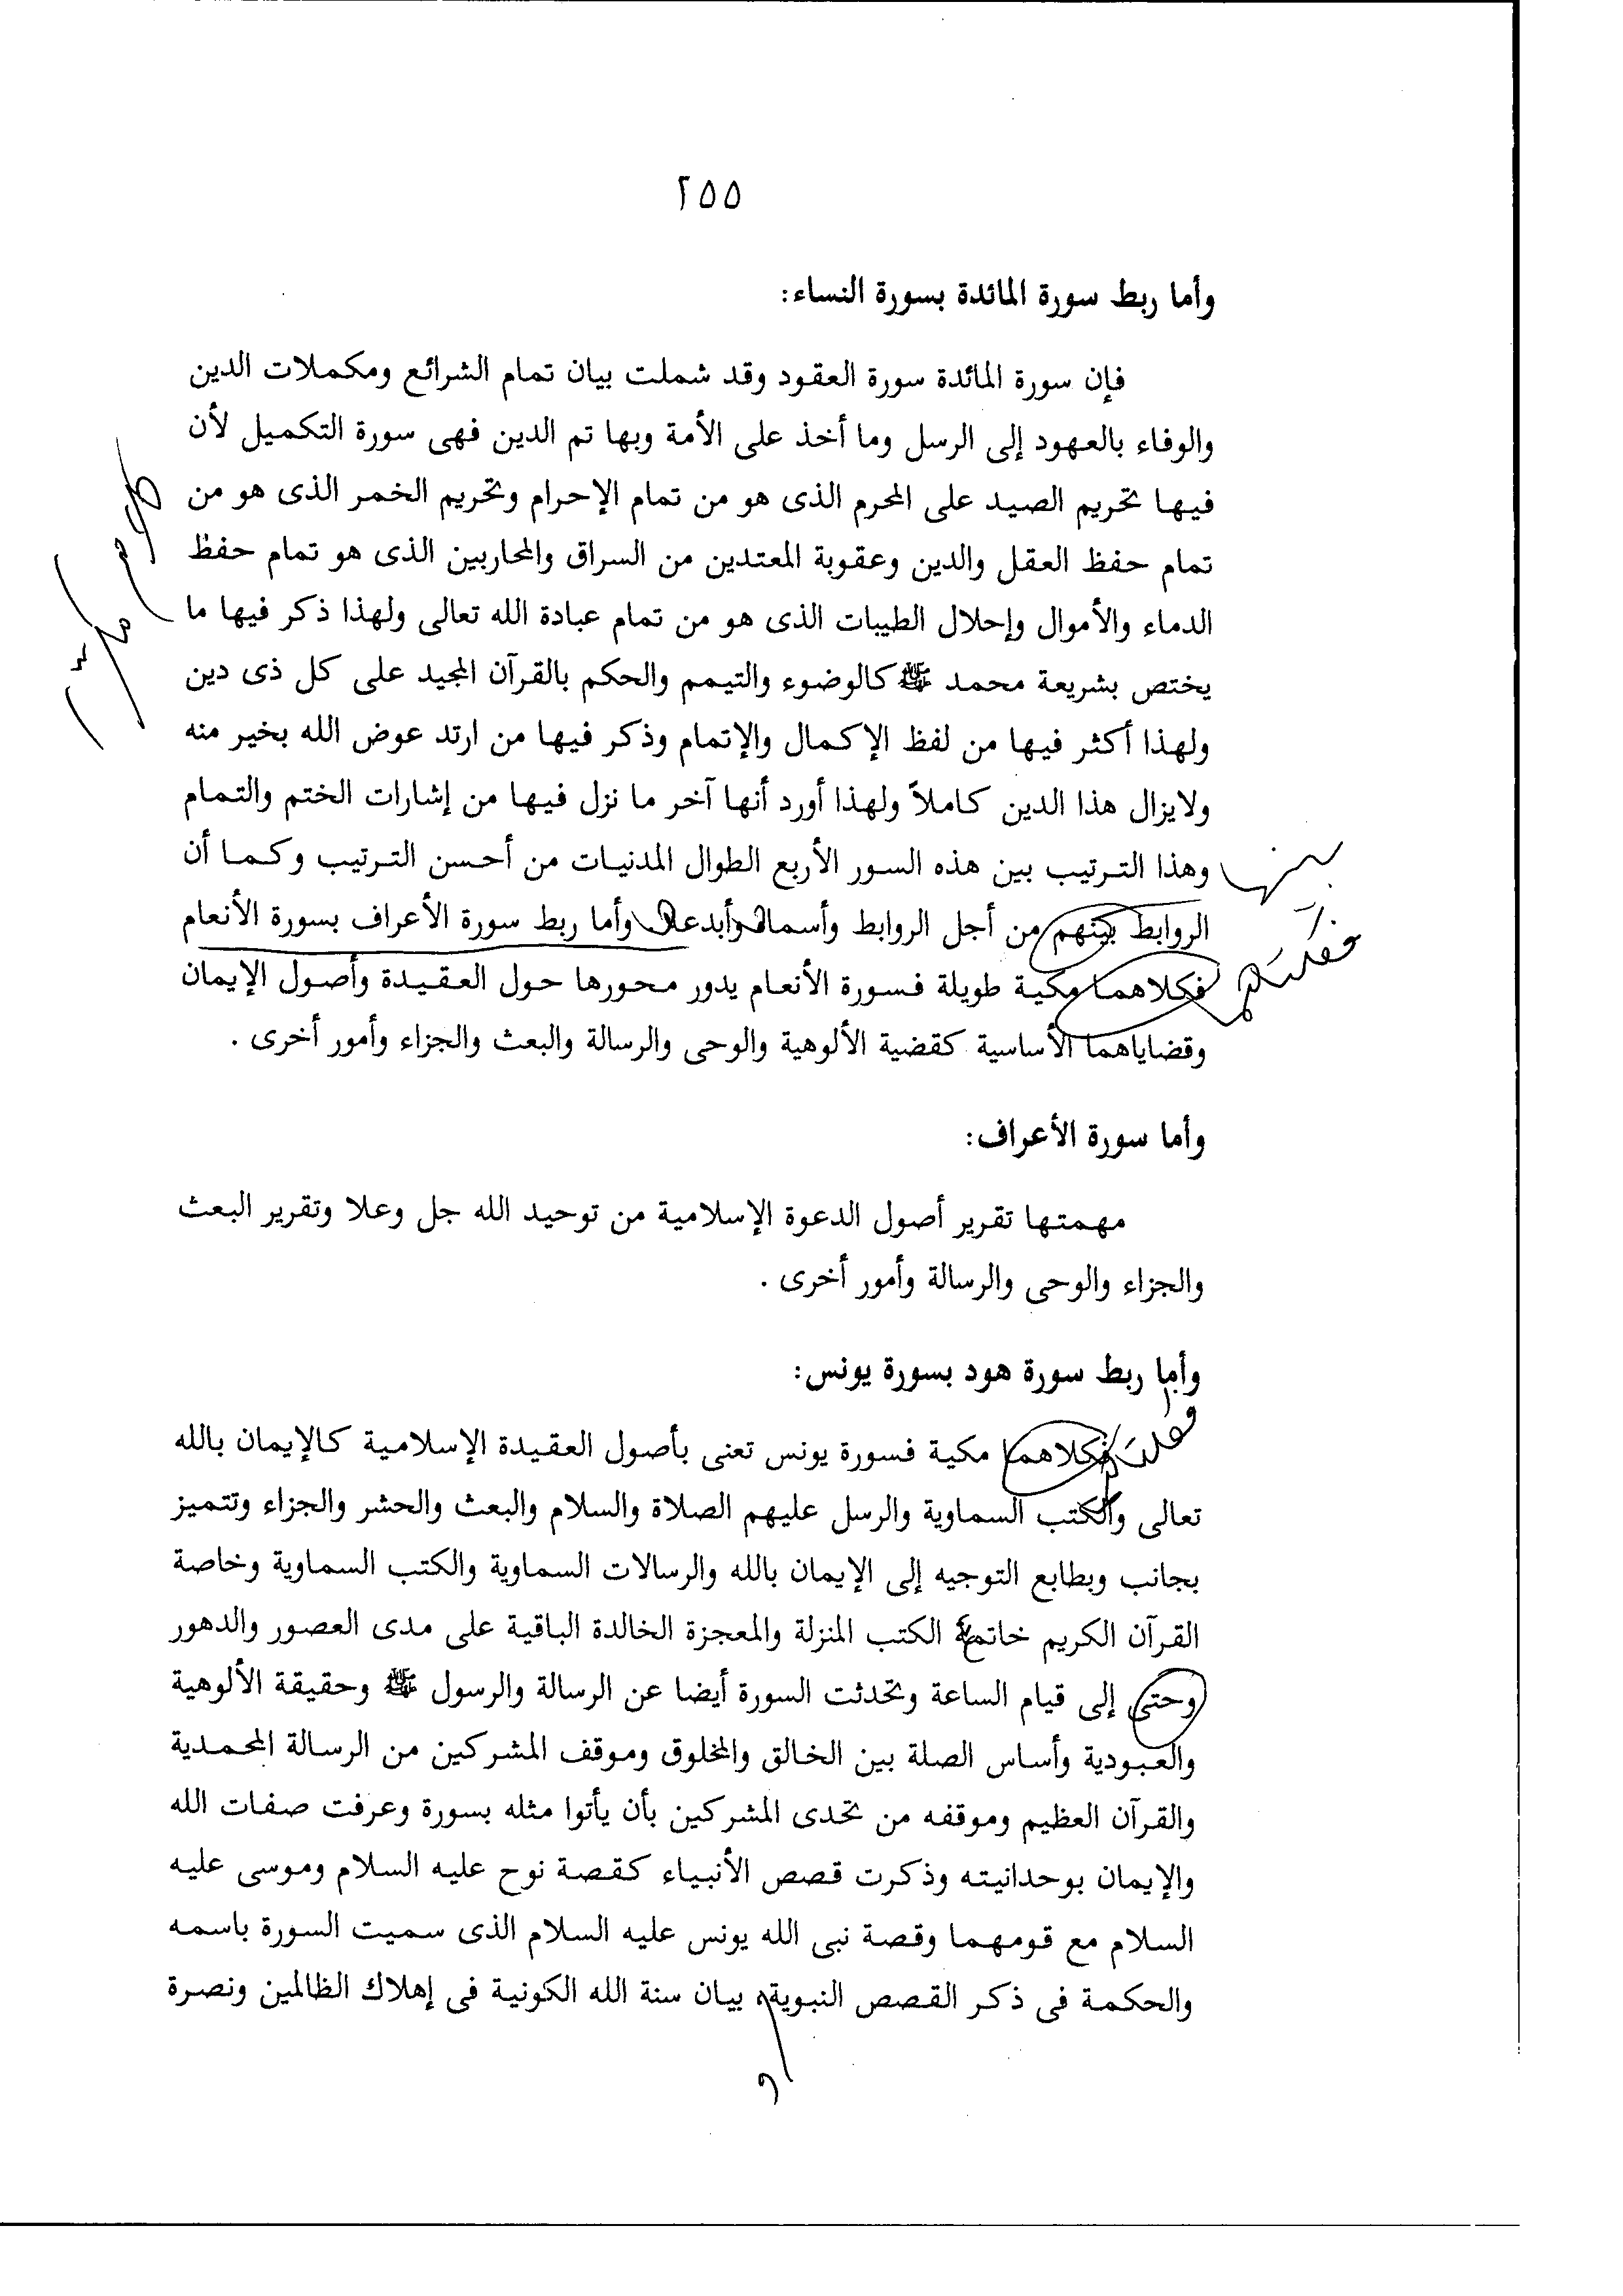 ٢٥٥
وأما ربط سورة المائدة بسورة النساء:
فإن سورة المائدة سورة العقود وقد شملت بيان تمام الشرائع ومكملات الدين
والوفاء بالعهود إلى الرسل وما أخذ على الأمة وبها تم الدين فهى سورة التكميل لأن
فيها تحريم الصيد على المحرم الذى هو من تمام الإحرام وتحريم الخمر الذى هو من
تمام حفظ العقل والدين وعقوبة المعتدين من السراق والمحاربين الذى هو تمام حفظ
الدماء والأموال وإحلال الطيبات الذى هو من تمام عبادة الله تعالى ولهذا ذكر فيها ما
يختص بشريعة محمد ﷺ كالوضوء والتيمم والحكم بالقرآن المجيد على كل ذى دين
ولهذا أكثر فيها من لفظ الإكمال والإتمام وذكر فيها من ارتد عوض الله بخير منه
ولايزال هذا الدين كاملاً ولهذا أورد أنها آخر ما نزل فيها من إشارات الختم والتمام
وهذا الترتيب بين هذه السور الأربع الطوال المدنيات من أحسن الترتيب وكما أن
بينها
الروابط بينهم من أجل الروابط وأسماه وأبدعه وأما ربط سورة الأعراف بسورة الأنعام
فكلتاهما
فكلاهما مكية طويلة فسورة الأنعام يدور محورها حول العقيدة وأصول الإيمان
وقضاياهما الأساسية كقضية الألوهية والوحى والرسالة والبعث والجزاء وأمور أخرى .
وأما سورة الأعراف:
مهمتها تقرير أصول الدعوة الإسلامية من توحيد الله جل وعلا وتقرير البعث
والجزاء والوحى والرسالة وأمور أخرى .
وأما ربط سورة هود بسورة يونس:
فكلاهما مكية فسورة يونس تعنى بأصول العقيدة الإسلامية كالإيمان بالله
تعالى والكتب السماوية والرسل عليهم الصلاة والسلام والبعث والحشر والجزاء وتتميز
بجانب وبطابع التوجيه إلى الإيمان بالله والرسالات السماوية والكتب السماوية وخاصة
القرآن الكريم خاتمة الكتب المنزلة والمعجزة الخالدة الباقية على مدى العصور والدهور
وحتى إلى قيام الساعة وتحدثت السورة أيضا عن الرسالة والرسول ﷺ وحقيقة الألوهية
والعبودية وأساس الصلة بين الخالق والمخلوق وموقف المشركين من الرسالة المحمدية
والقرآن العظيم وموقفه من تحدى المشركين بأن يأتوا مثله بسورة وعرفت صفات الله
والإيمان بوحدانيته وذكرت قصص الأنبياء كقصة نوح عليه السلام وموسى عليه
السلام مع قومهما وقصة نبى الله يونس عليه السلام الذى سميت السورة باسمه
والحكمة فى ذكر القصص النبوية بيان سنة الله الكونية فى إهلاك الظالمين ونصرة